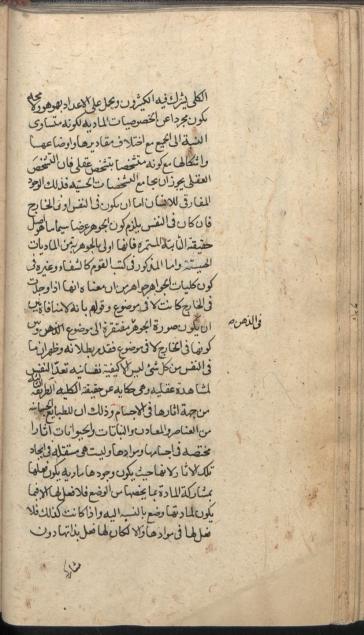 الكلى يشترك فيه الكثيرون ويحمل على الاعداد بهو هو ولا محالة
يكون مجردا عن الخصوصيات المادية لكونه متساوى
النسبة الى الجميع مع اختلاف مقاديرها واوضاعها
واشكالها مع كونه متشخصا بتشخص عقلى فان التشخص
العقلى يجوز ان يجامع التشخصات الحسية فذلك الوجود
المفارقى للانسان اما ان يكون فى النفس او فى الخارج
فان كان فى النفس يلزم كون الجوهر عرضا سيما ما هو اصل
حقيقة الثابتة المستمرة فانها اولى بالجوهرية من الماديات
الحسيسة واما المذكور فى كتب القوم كالشفاء وغيره فى
كون كليات الجواهر جواهر من ان معناه انها اذا وجدت
فى الخارج كانت لا فى موضوع وقولهم بانه لا منافاة بين
ان يكون صورة الجوهر مفتقرة الى موضوع الذهن وبين
كونها فى الخارج لا فى موضوع فقد مر بطلانه وظهر ان ما
فى النفس من كل شئ ليس الا كيفية نفسانية تعد النفس
لمشاهدة عقلية وهى حكاية عن حقيقة الكلية الطريقة
من جهة اثارها فى الاجسام وذلك ان للطبايع الجسمانية
من العناصر والمعادن والنباتات والحيوانات اثارا
مختصة فى اجسامها وموادها وليست هى مستقلة فى ايجاد
تلك الاثار لانها حيث يكون وجودها مادية يكون فعلها
بمشاركة المادة بما يخصها من الوضع فلا فعل لها الا فيما
يكون لمادتها وضع بالنسبة اليه واذا كانت كذلك فلا
فعل لها فى موادها والا لكان لها فعل بذاتها دون
فى الذهن